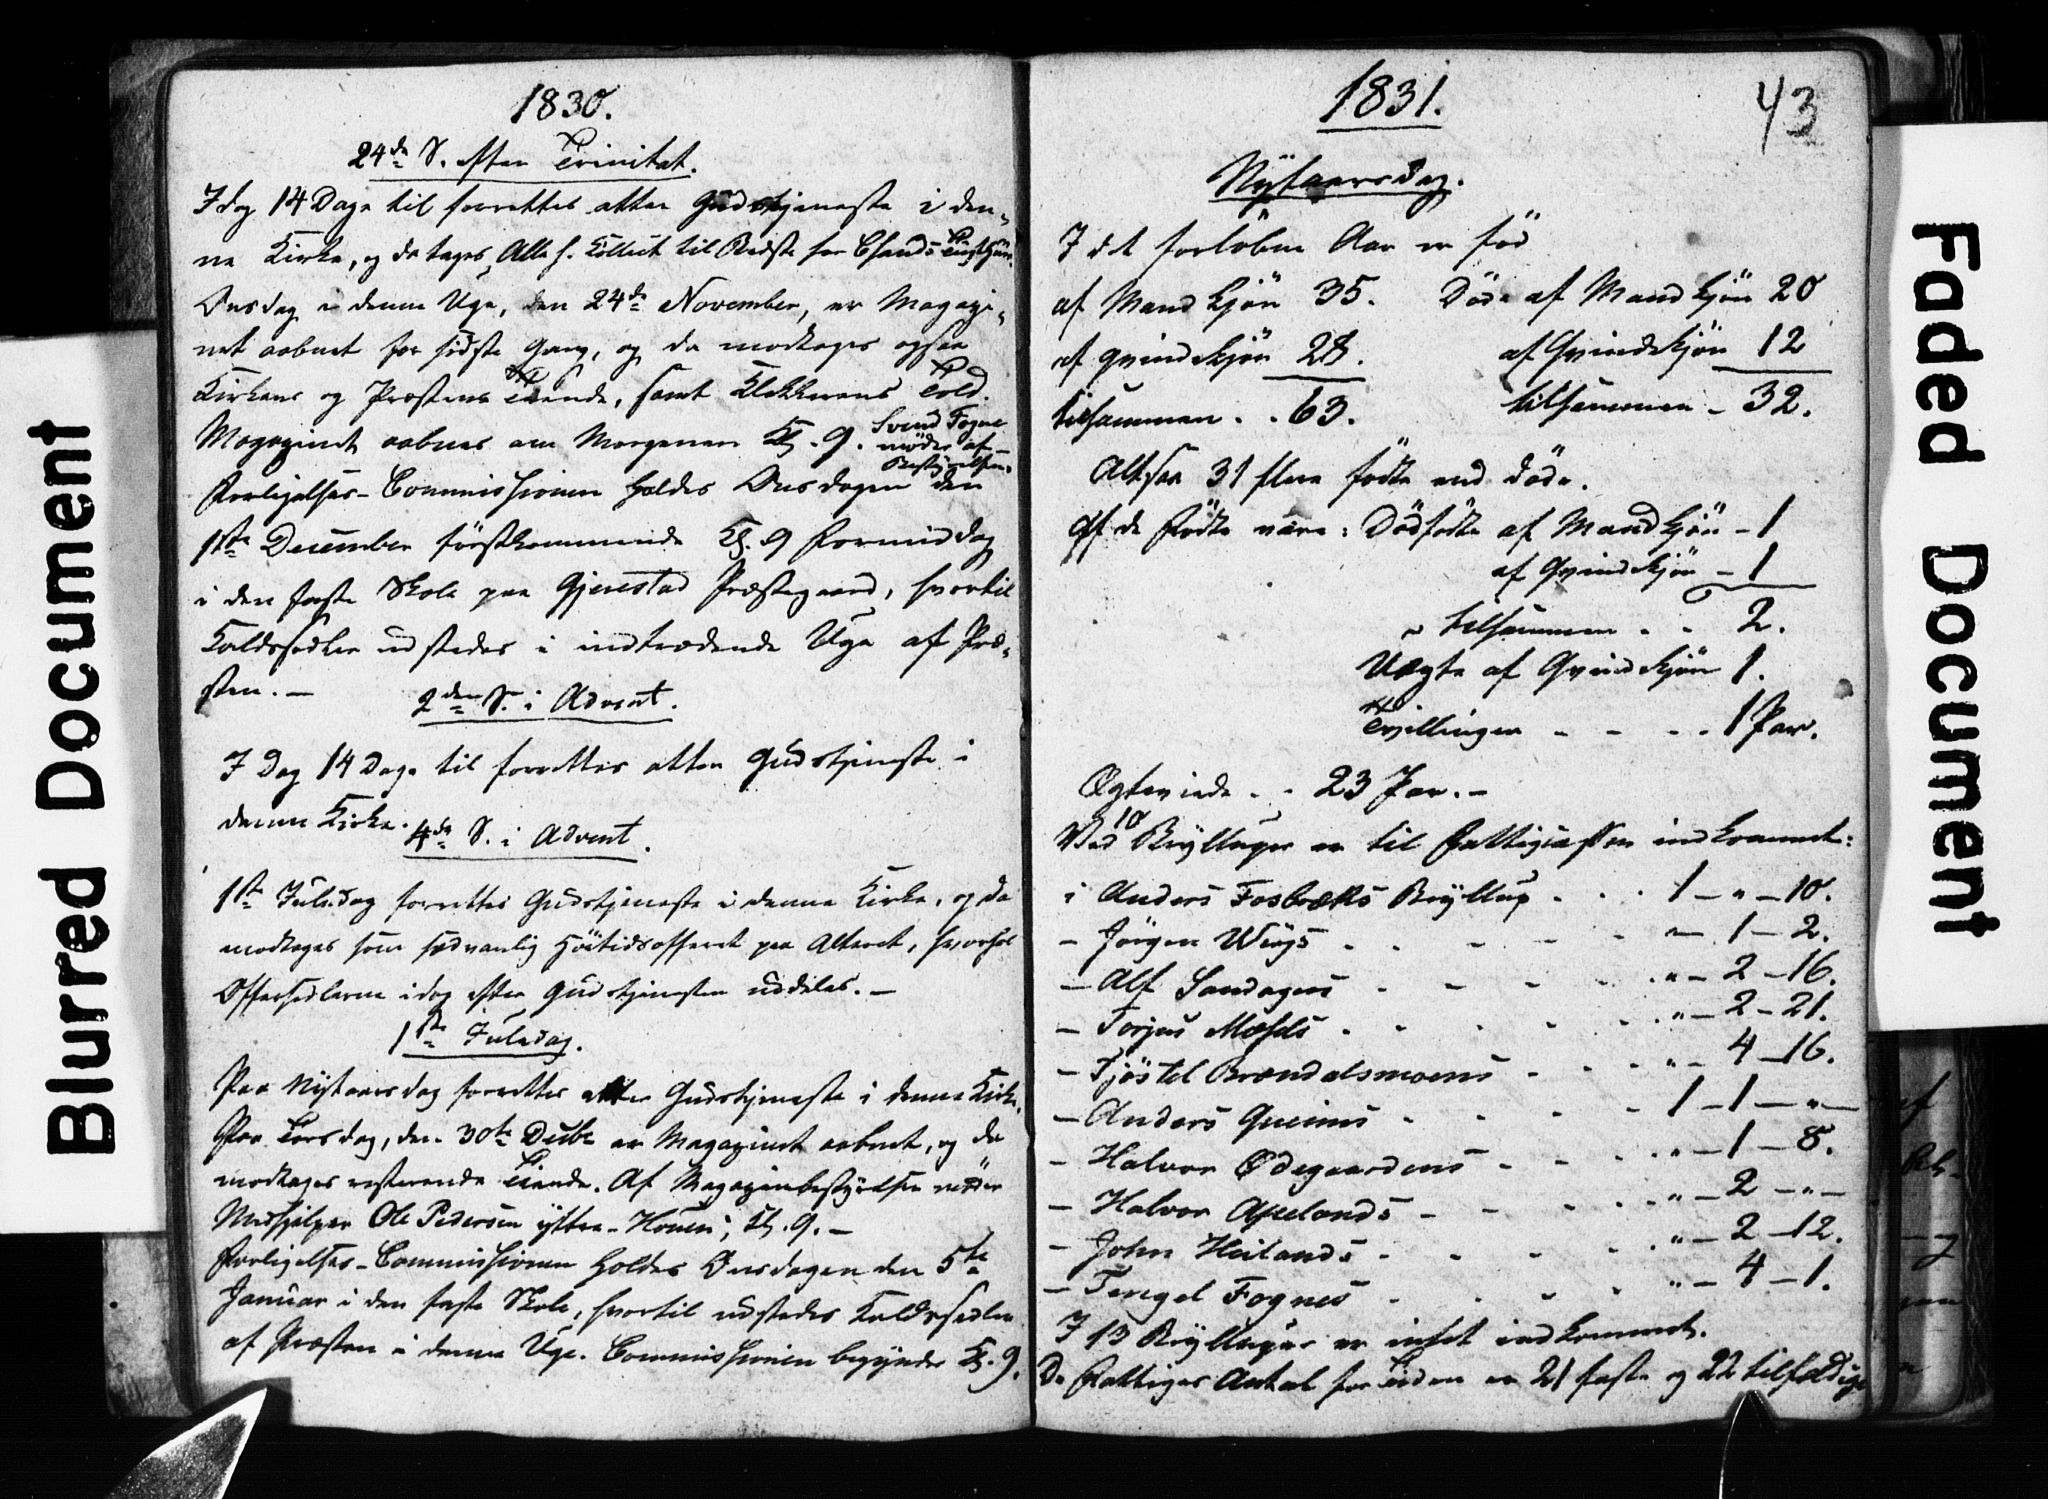 1830.
24de S. efter Trinitat.
I dag 14 Dage til forrettes atter Gudstjeneste i den-
ne Kirke, og da tages Alle H. Collect til Bedste for Chsands Tugthuus.
Onsdag i denne Uge, den 24de November, er Magazi-
net aabnet for sidste Gang, og da modtages ogsaa
Kirkens og Præstens Tiende, samt Klokkerens Told.
Magazinet aabnes om Morgenen Kl. 9. Svend Fogne
møder af
Bestyrelsen.
Forligelses-Commissionen holdes Onsdagen den
1ste December førstkommende Kl. 9 Formiddag
i den faste Skole paa Gjerestad Præstegaard, hvortil
Kaldssedler udstedes i indtrædende Uge af Præ-
sten. —
2den S. i Advent.
I Dag 14 Dage til forrettes atter Gudstjeneste i
denne Kirke.
4de S. i Advent.
1ste Juledag forrettes Gudstjeneste i denne Kirke, og da
modtages som sædvanlig Høitidsofferet paa Alteret, hvorfor
Offersedlerne idag efter Gudstjenesten uddeles. —
1ste Juledag.
Paa Nytaarsdag forrettes atter Gudstjeneste i denne Kirke.
Paa Torsdag, den 30te Decbr er Magazinet aabnet, og da
modtages resterende Tiende. Af Magazinbestyrelsen møder
Medhjelper Ole Pedersen yttre-Houen, Kl. 9. —
Forligelses-Commissionen holdes Onsdagen den 5te
Januar i den faste Skole, hvortil udstedes Kaldssedler
af Præsten i denne Uge. Commissionen begynder Kl. 9.
1831.
43
Nytaarsdag.
I det forløbne Aar er fød
af Mandkjøn 35. Døde af Mandkjøn 20
af Qvindekjøn 28. af Qvindekjøn 12
tilsammen . . 63. tilsammen - 32.
Altsaa 31 flere fødte end døde.
Af de Fødte vare: Dødfødte af Mandkjøn - 1
af Qvindekjøn - 1
tilsammen . . 2.
Uægte af Qvindekjøn 1.
Tvillinger - - - 1 Par.
Ægteviede . . 23 Par. —
Ved 10 Bryllupper er til Fattigcassen indkommet:
i Anders Fosbæks Bryllup . . . 1 — " — 10.
— Jørgen Wiigs . . . " — 1 — 2.
— Alf Sandagers . . . " — 2 — 16.
— Torjus Mosfels . . . " — 2 — 21.
— Tjøstel Brændalsmoens . . . " — 4 — 16.
— Anders Qveims . . . 1 — 1 — " —
— Halvor Ødegaardens . . . " — 1 — 8.
— Halvor Apelands . . . " — 2 — " —
— John Heilands . . . " — 2 — 12.
— Tengel Fognes . . . " — 4 — 1.
I 13 Bryllupper er intet indkommet.
De Fattiges Antal for Tiden er 21 faste og 22 tilfældige
Blurred Document
Faded Document